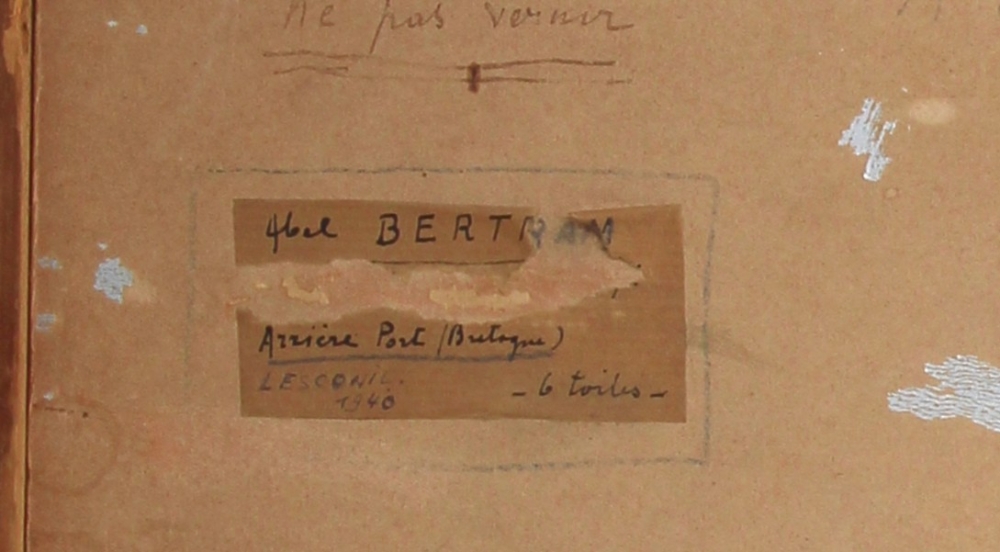 Ne pas vernir
Abel BERTRAM
Arrière Port (Bretagne)
LESCONIL.
1940
- 6 toiles -